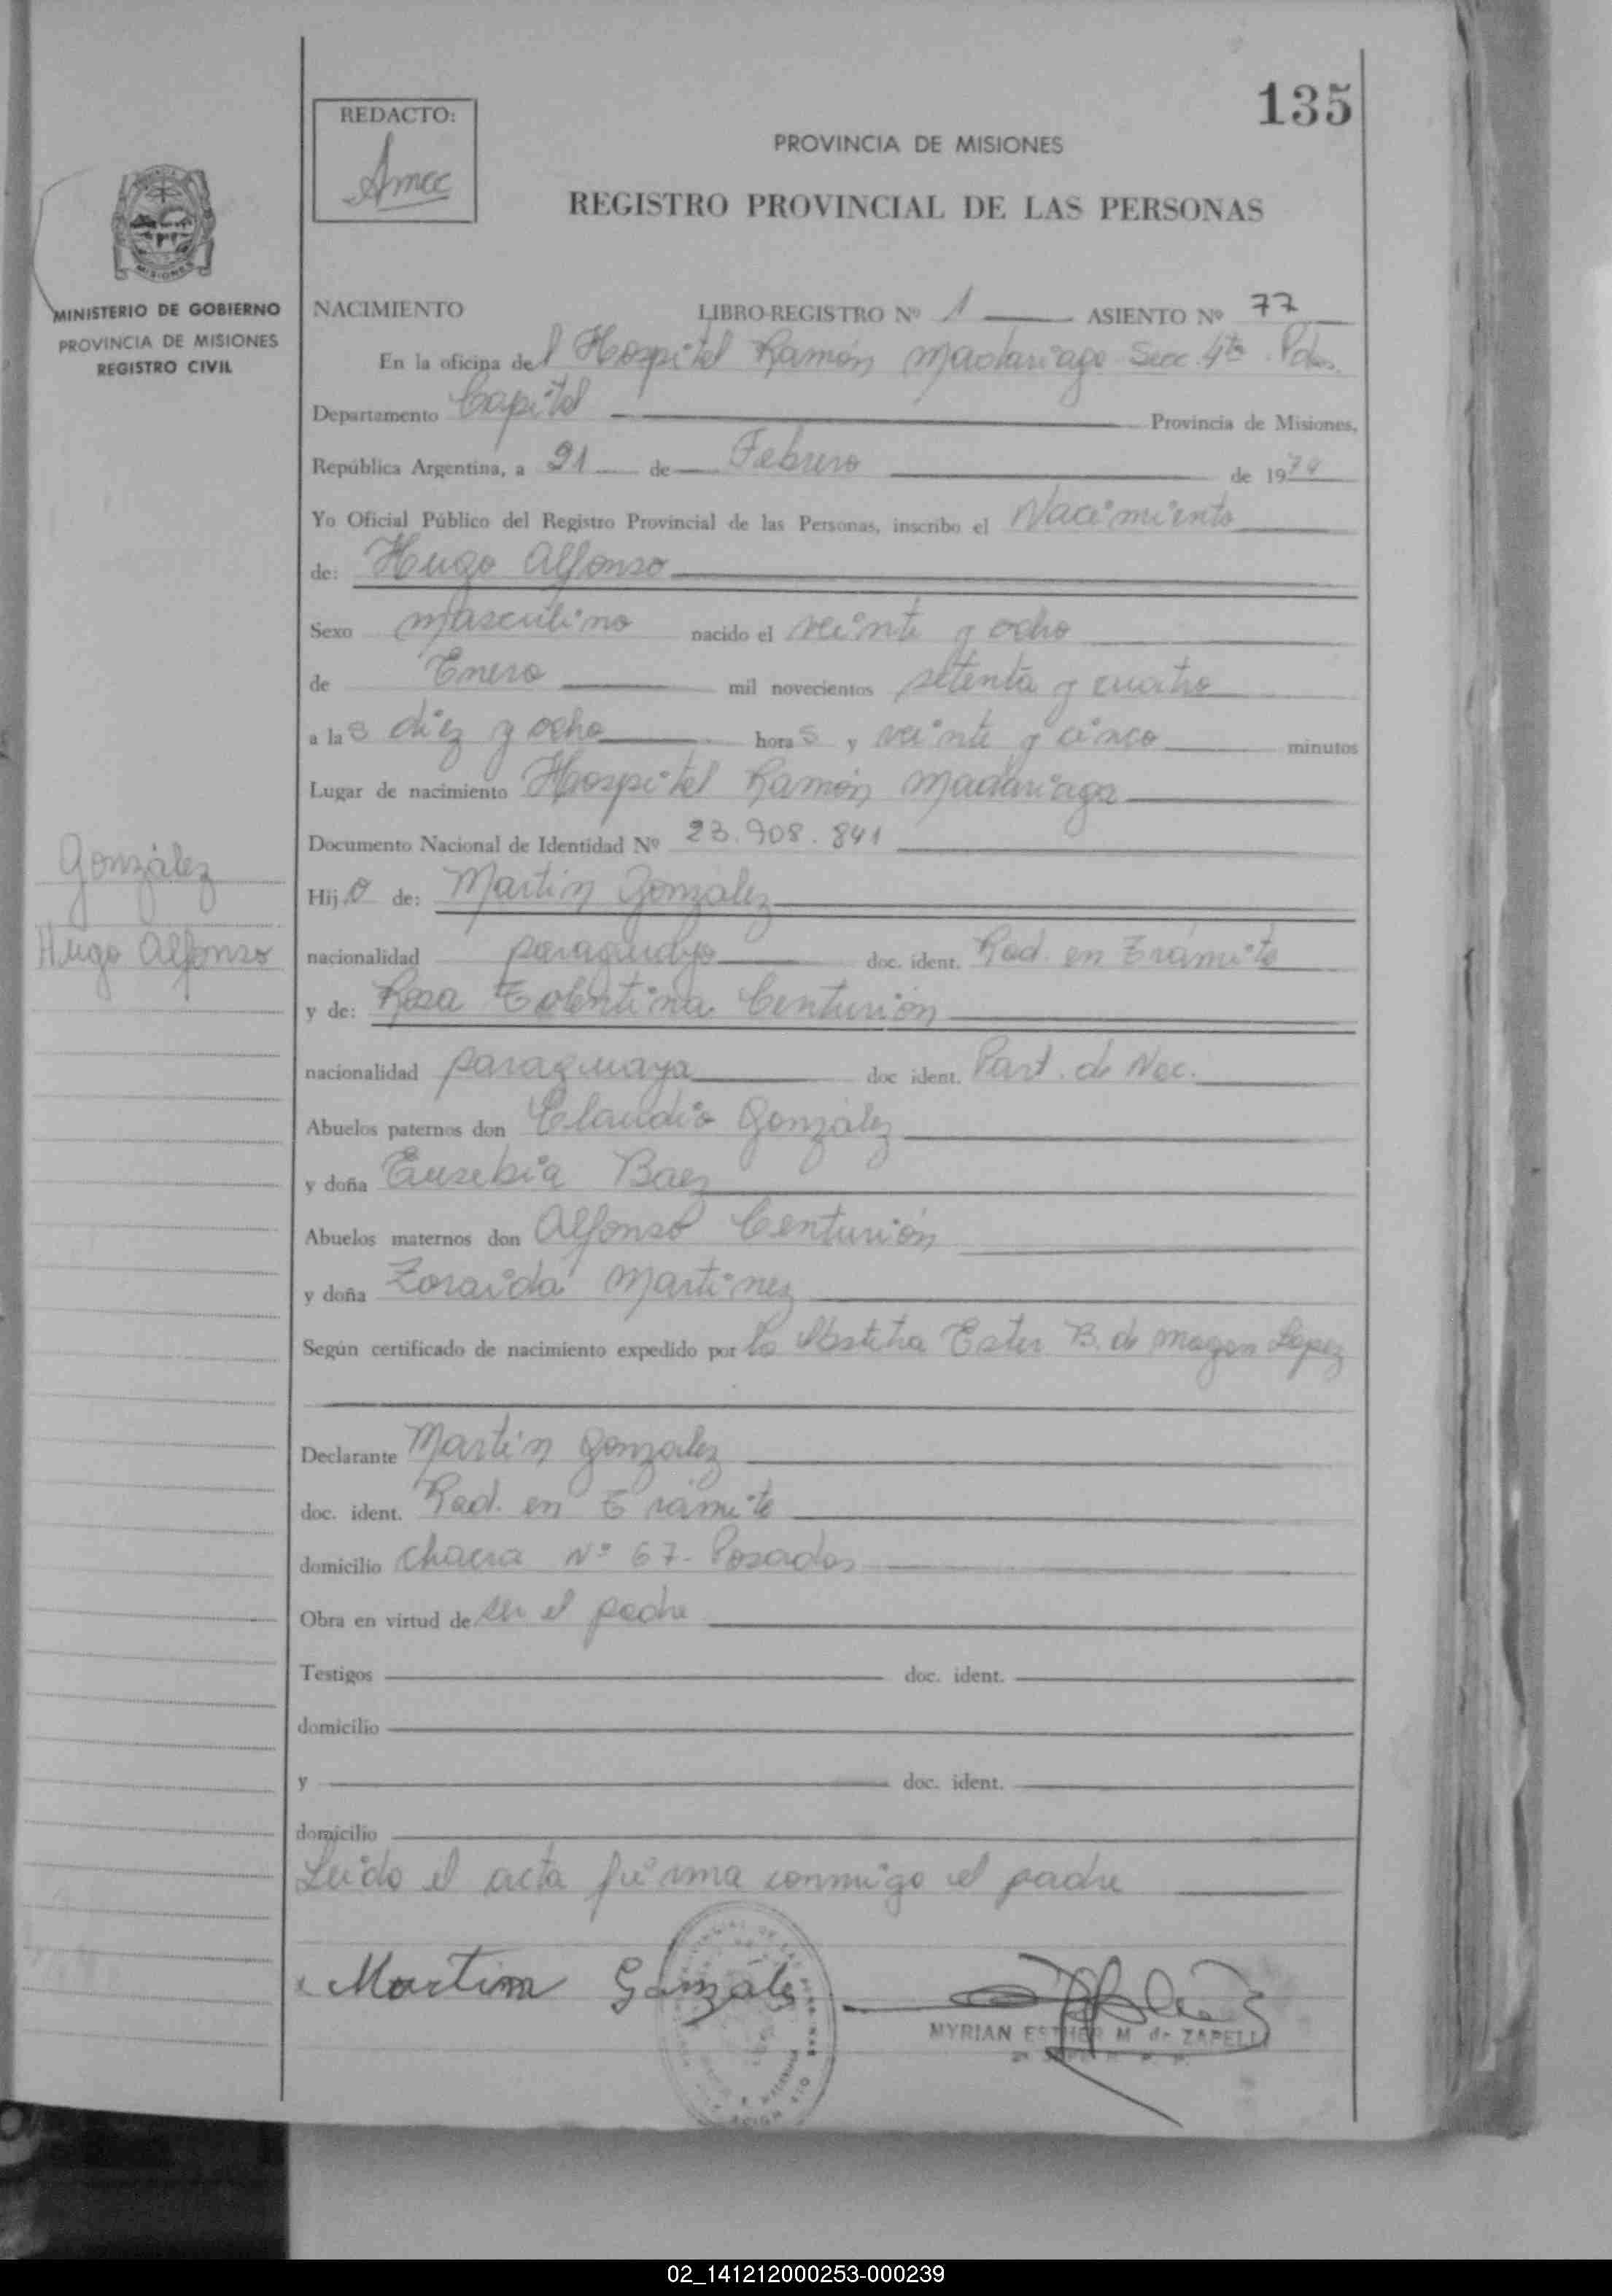 135
REDACTO:
Amec
PROVINCIA DE MISIONES
REGISTRO PROVINCIAL DE LAS PERSONAS
MISIONES
MINISTERIO DE GOBIERNO
PROVINCIA DE MISIONES
REGISTRO CIVIL
NACIMIENTO LIBRO-REGISTRO Nº 1 ASIENTO Nº 77
En la oficina del Hospital Ramón Madariaga Secc. 4ta. Pdas.
Departamento Capital Provincia de Misiones,
República Argentina, a 21 de Febrero de 1974
Yo Oficial Público del Registro Provincial de las Personas, inscribo el Nacimiento
de: Hugo Alfonso
Sexo masculino nacido el veinte y ocho
de Enero mil novecientos setenta y cuatro
a las diez y ocho horas y veinte y cinco minutos
Lugar de nacimiento Hospital Ramón Madariaga
Documento Nacional de Identidad Nº 23.908.841
González
Hijo de: Martín González
Hugo Alfonso
nacionalidad paraguayo doc. ident. Rad. en Trámite
y de: Rosa Tolentina Centurión
nacionalidad paraguaya doc ident. Part. de Nac.
Abuelos paternos don Claudio González
y doña Eusebia Baez
Abuelos maternos don Alfonso Centurión
y doña Zoraida Martinez
Según certificado de nacimiento expedido por la Obstetra Ester B. de Magan López
Declarante Martín González
doc. ident. Rad. en Trámite
domicilio Chacra Nº 67- Posadas
Obra en virtud de ser el padre
Testigos doc. ident.
domicilio
y doc. ident.
domicilio
Leído el acta firma conmigo el padre
Martin González
MYRIAN ESTHER M. de ZAPELLI
02_141212000253-000239